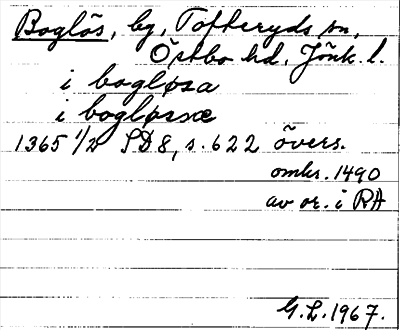 Boglös, by, Tofteryds sn,
Östbo hd. Jönk. l.
i bogløsa
i bogløsæ
1365 1/2 SD8, s. 622 övers.
omkr. 1490
av or. i RA
G.L. 1967.